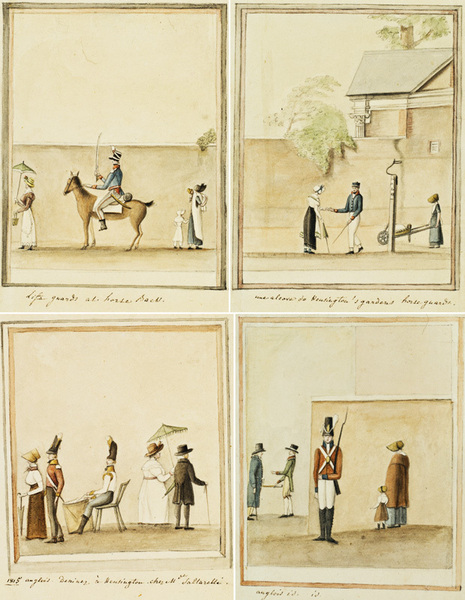 Life guards at horse Back.
une alcove de Kensington's gardens horse guards.
1815 anglois Dominos à Kensington chez Mr Saltarelli.
anglois is. is.